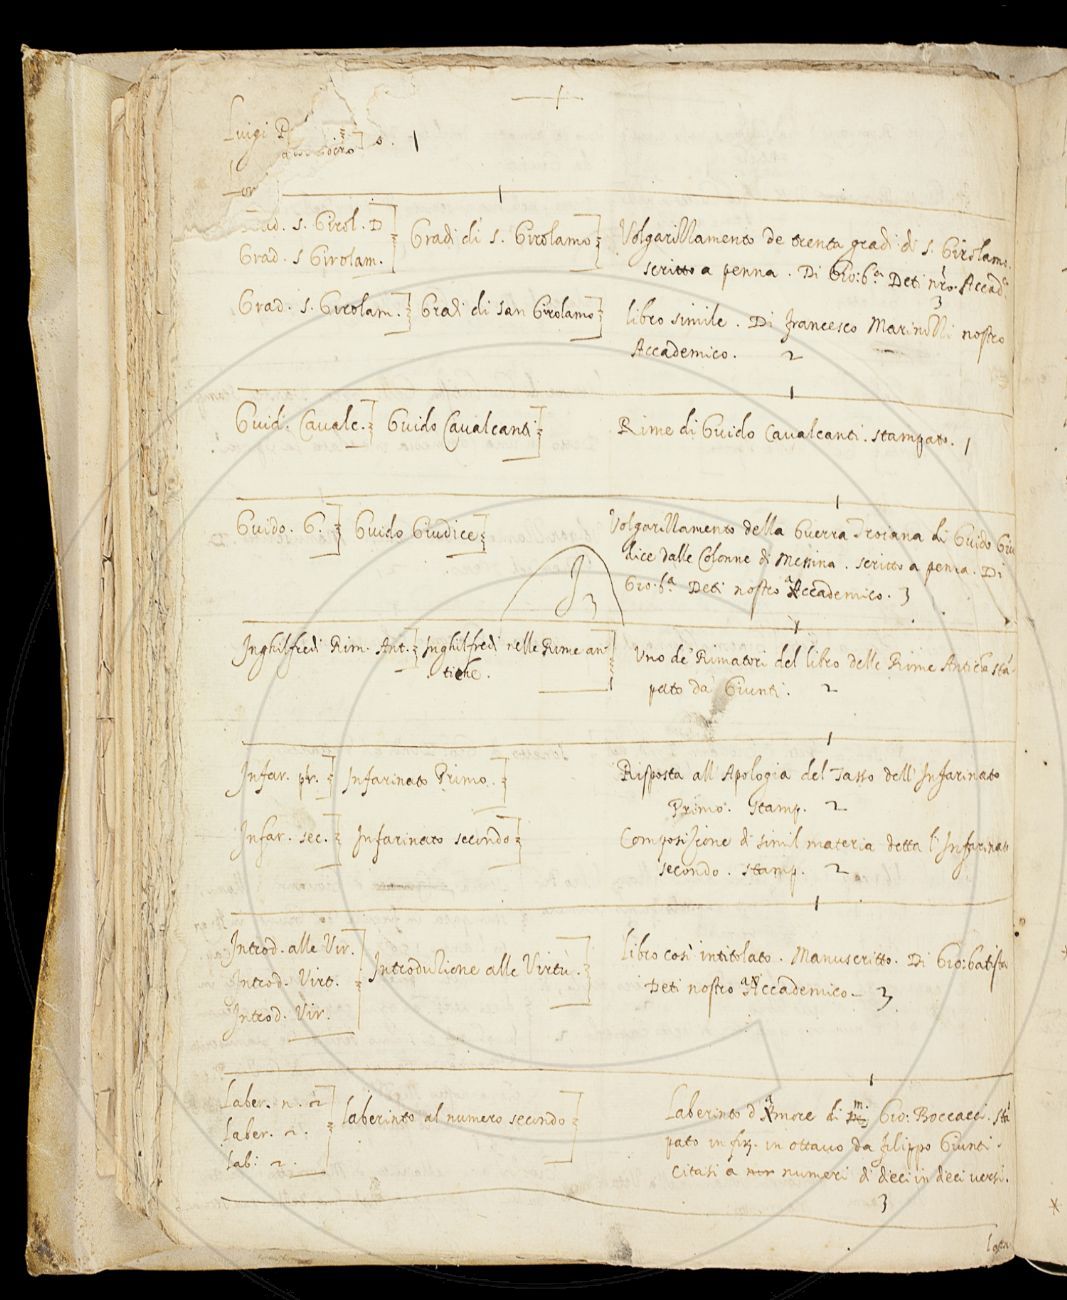 Luigi P
1
Grad. S. Girol. D
Grad. S Girolam.
Gradi di S. Girolamo
Volgarizzamento de trenta gradi di S. Girolamo.
scritto a penna. Di Gio: b.a Deti nrō. Accad.
3
Grad. S. Girolam.
Gradi di San Girolamo
libro simile. Di francesco Marinozzi nostro
Accademico. 2
Guid. Cavalc.
Guido Cavalcanti
Rime di Guido Cavalcanti. stampato. 1
Guido. G.
Guido Giudice
Volgarizzamento della Guerra Troiana di Guido Giu
dice dalle Colonne di Messina. scritto a penna. Di
Gio: b.a Deti nostro Accademico. 3
J 3
Inghilfredi Rim. Ant.
Inghilfredi nelle Rime an
tiche.
Uno de' Rimatori del libro delle Rime Antiche stā
pato da' Giunti. 2
Infar. pr.
Infarinato Primo.
Risposta all'Apologia del Tasso dell'Infarinato
Primo. Stamp. 2
Infar. sec.
Infarinato secondo
Composizione di simil materia detta l'Infarinato
secondo. stamp. 2
Introd. alle Vir.
Introd. Virt.
Introd. Vir.
Introduzione alle Virtù.
libro così intitolato. Manuscritto. Di Gio: batista
Deti nostro Accademico. 3
Laber. n. 2
Laber. 2.
Lab: 2.
Laberinto al numero secondo
Laberinto d'Amore di m. Gio: Boccacci. stā
pato in firz. in ottavo da filippo Giunti.
Citasi a numeri di dieci in dieci versi.
3